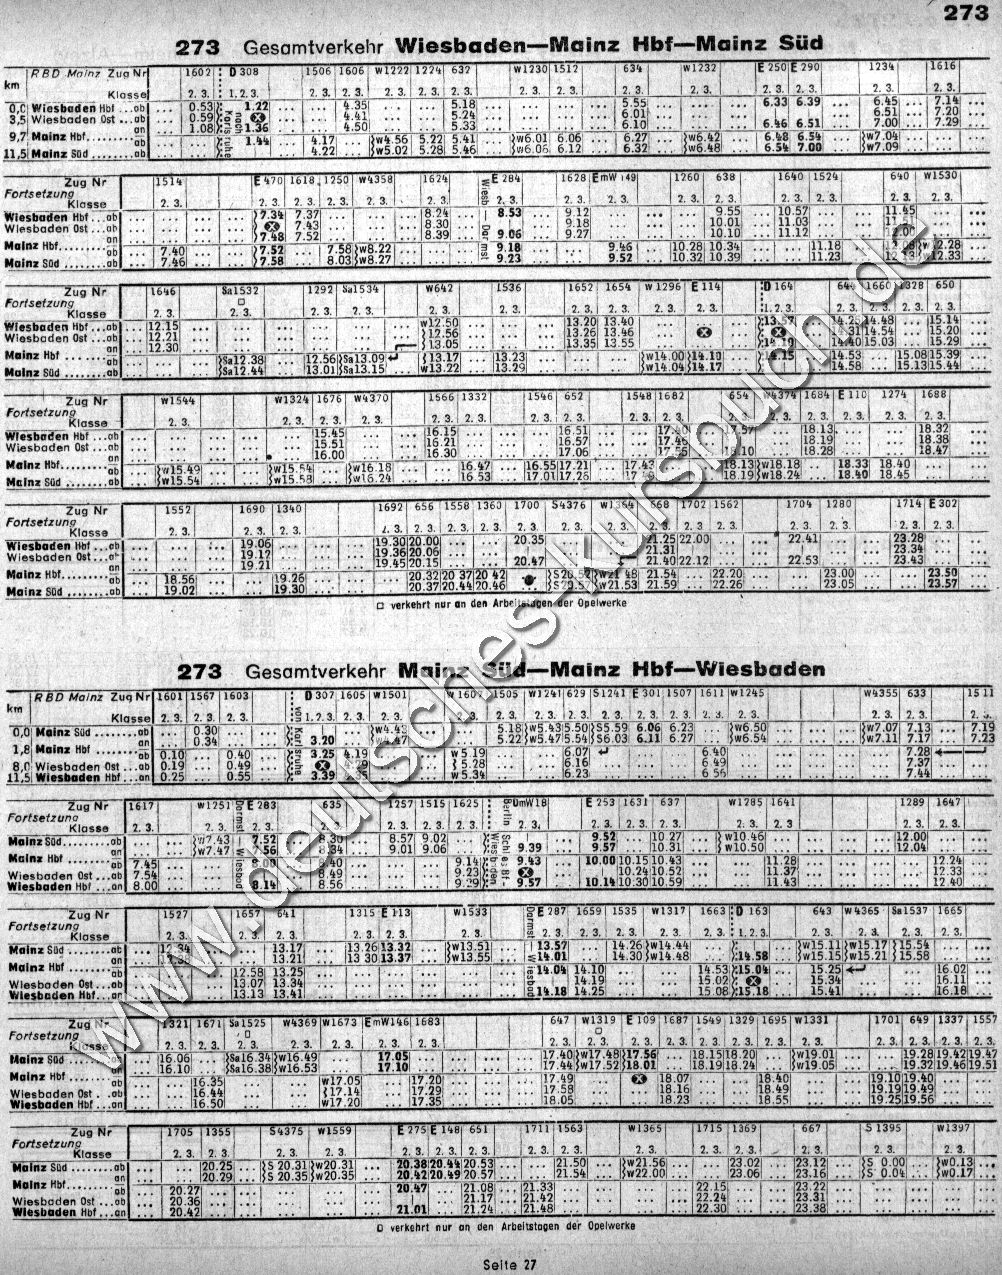 273
273 Gesamtverkehr Wiesbaden—Mainz Hbf—Mainz Süd
km RBD Mainz Zug Nr 1602 D 308 1506 1606 W1222 1224 632 W1230 1512 634 W1232 E 250 E 290 1234 1616
Klasse 2. 3. 1. 2. 3. 2. 3. 2. 3. 2. 3. 2. 3. 2. 3. 2. 3. 2. 3. 2. 3. 2. 3. 2. 3. 2. 3. 2. 3. 2. 3.
0,0 Wiesbaden Hbf ...ab 0.53 1.22 4.35 5.18 5.55 6.33 6.39 6.45 7.14
3,5 Wiesbaden Ost ..ab 0.59 4.41 5.24 6.01 6.51 7.20
9,7 Mainz Hbf. an 1.08 1.36 4.50 5.33 6.10 6.46 6.51 7.00 7.29
ab 1.44 4.17 w4.56 5.22 5.41 w6.01 6.06 6.27 w6.42 6.48 6.54 w7.04
11,5 Mainz Süd ab 4.22 w5.02 5.28 5.46 w6.06 6.12 6.32 w6.48 6.54 7.00 w7.09
Zug Nr 1514 E 470 1618 1250 W4358 1624 E 284 1628 EmW 149 1260 638 1640 1524 640 W1530
Fortsetzung
Klasse
Wiesbaden Hbf ...ab 7.34 7.37 8.24 8.53 9.12 9.55 10.57 11.45
Wiesbaden Ost ..ab 7.43 8.30 9.18 10.01 11.03 11.51
an 7.48 7.52 8.39 9.06 9.27 10.10 11.12
Mainz Hbf. ab 7.40 7.52 7.58 w8.22 9.18 9.46 10.28 10.34 11.18
Mainz Süd ab 7.46 7.58 8.03 w8.27 9.23 9.52 10.32 10.39 11.23 w12.33
Zug Nr 1646 Sa1532 1292 Sa1534 W642 1536 1652 1654 W1296 E 114 D 164 1660 1328 650
Fortsetzung
Klasse
Wiesbaden Hbf ...ab 12.15 w12.50 13.20 13.40 14.48 15.14
Wiesbaden Ost ..ab 12.21 12.56 13.26 13.46 14.54 15.20
an 12.30 13.05 13.35 13.55 14.40 15.03 15.29
Mainz Hbf ab Sa12.38 12.56 Sa13.09 13.17 13.23 w14.00 14.10 14.53 15.08 15.39
Mainz Süd ab Sa12.44 13.01 Sa13.15 w13.22 13.29 w14.04 14.17 14.58 15.13 15.44
Zug Nr W1544 W1324 1676 W4370 1566 1332 1546 652 1548 1682 654 W4374 1684 E 110 1274 1688
Fortsetzung
Klasse
Wiesbaden Hbf ...ab 15.45 16.15 16.51 18.13 18.32
Wiesbaden Ost ..ab 15.51 16.21 16.57 18.19 18.38
an 16.00 16.30 17.06 18.28 18.47
Mainz Hbf. ab w15.49 w15.54 w16.18 16.47 16.55 17.21 18.13 w18.18 18.33 18.40
Mainz Süd ab w15.54 w15.58 w16.24 16.53 17.01 17.26 18.19 w18.24 18.40 18.45
Zug Nr 1552 1690 1340 1692 656 1558 1360 1700 S4376 W1364 668 1702 1562 1704 1280 1714 E 302
Fortsetzung
Klasse
Wiesbaden Hbf ...ab 19.06 19.30 20.00 20.35 21.25 22.00 22.41 23.28
Wiesbaden Ost ...ab 19.12 19.36 20.06 21.31 23.34
an 19.21 19.45 20.15 20.47 21.40 22.12 22.53 23.43
Mainz Hbf. ab 18.56 19.26 20.32 20.37 20.42 21.54 22.20 23.00 23.50
Mainz Süd ab 19.02 19.30 20.37 20.44 20.46 w21.53 21.59 22.26 23.05 23.57
□ verkehrt nur an den Arbeitstagen der Opelwerke
273 Gesamtverkehr Mainz Süd—Mainz Hbf—Wiesbaden
km RBD Mainz Zug Nr 1601 1567 1603 D 307 1605 W1501 W1607 1505 W1241 629 S1241 E 301 1507 1611 W1245 W4355 633 1511
Klasse
0,0 Mainz Süd ab 0.30 5.18 w5.43 5.50 S5.59 6.06 6.23 w6.50 w7.07 7.13 7.19
1,8 Mainz Hbf an 0.34 3.20 5.22 w5.47 5.54 S6.03 6.11 6.27 w6.54 w7.11 7.17 7.23
ab 0.10 0.40 3.25 4.19 w5.19 6.07 6.40 7.28
8,0 Wiesbaden Ost ....ab 0.19 0.49 5.28 6.16 6.49 7.37
11,5 Wiesbaden Hbf ...an 0.25 0.55 3.39 w5.34 6.23 6.56 7.44
Zug Nr 1617 W1251 E 283 635 1257 1515 1625 DmW18 E 253 1631 637 W1285 1641 1289 1647
Fortsetzung
Klasse
Mainz Süd ab w7.43 7.52 8.30 8.57 9.02 9.52 10.27 w10.46 12.00
an w7.47 7.56 8.34 9.01 9.06 9.39 9.57 10.31 w10.50 12.04
Mainz Hbf ab 7.45 8.00 8.40 9.14 9.43 10.00 10.15 10.43 11.28 12.24
Wiesbaden Ost ...ab 7.54 8.49 9.23 10.24 10.52 11.37 12.33
Wiesbaden Hbf ...an 8.00 8.14 8.56 9.29 9.57 10.14 10.30 10.59 11.43 12.40
Zug Nr 1527 1657 641 1315 E 113 W1533 E 287 1659 1535 W1317 1663 D 163 643 W4365 Sa1537 1665
Fortsetzung
Klasse
Mainz Süd ab 12.34 13.17 13.26 13.32 w13.51 13.57 14.26 w14.44 w15.11 w15.17 15.54
an 12.38 13.21 13.30 13.37 w13.55 14.01 14.30 w14.48 14.58 w15.15 w15.21 15.58
Mainz Hbf ab 12.58 13.25 14.04 14.10 14.53 15.04 15.25 16.02
Wiesbaden Ost ...ab 13.07 13.34 14.19 15.02 15.34 16.11
Wiesbaden Hbf...an 13.13 13.41 14.18 14.25 15.08 15.18 15.41 16.18
Zug Nr 1321 1671 Sa1525 W4369 W1673 EmW146 1683 647 W1319 E 109 1687 1549 1329 1695 W1331 1701 649 1337 1557
Fortsetzung
Klasse
Mainz Süd ab 16.06 Sa16.34 w16.49 17.05 17.40 w17.48 17.56 18.15 18.20 w19.01 19.28 19.42 19.47
an 16.10 Sa16.38 w16.53 17.10 17.44 w17.52 18.01 18.19 18.24 w19.05 19.32 19.46 19.51
Mainz Hbf ab 16.35 w17.05 17.20 17.49 18.07 18.40 19.10 19.40
Wiesbaden Ost ...ab 16.44 17.14 17.29 17.58 18.16 18.49 19.19 19.49
Wiesbaden Hbf ...an 16.50 w17.20 17.35 18.05 18.23 18.55 19.25 19.56
Zug Nr 1705 1355 S4375 W1559 E 275 E 148 651 1711 1563 W1365 1715 1369 667 S 1395 W1397
Fortsetzung
Klasse
Mainz Süd ab 20.25 S 20.31 w20.31 20.38 20.44 20.53 21.50 w21.56 23.02 23.12 S 0.00 w0.13
an 20.29 S 20.35 w20.35 20.42 20.49 20.57 21.54 w22.00 23.06 23.16 S 0.04 w0.17
Mainz Hbf. ab 20.27 20.47 21.08 21.33 22.15 23.22
Wiesbaden Ost ...ab 20.36 21.17 21.42 22.24 23.31
Wiesbaden Hbf ...an 20.42 21.01 21.24 21.48 22.30 23.38
□ verkehrt nur an den Arbeitstagen der Opelwerke
Seite 27
www.deutsches-kursbuch.de